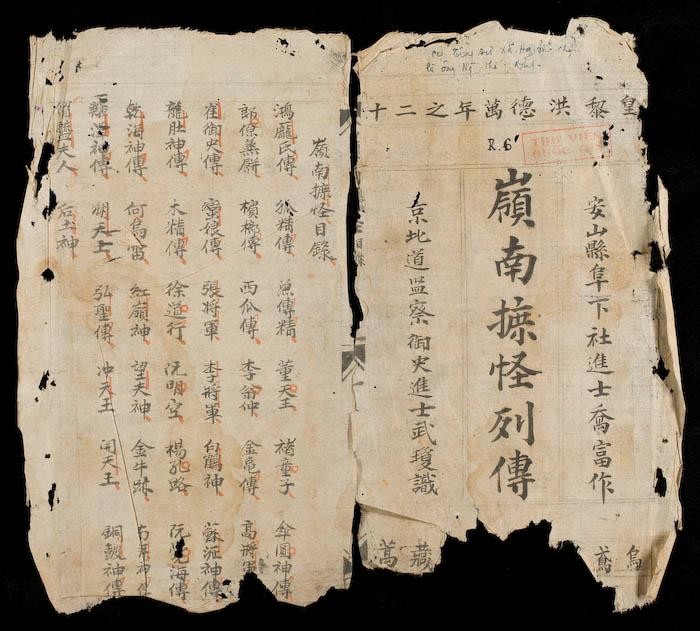 皇黎洪德萬年之二十
R. 6
THƯ VIỆN
安山縣阜下社進士喬富作
嶺南摭怪列傳
京北道监察御史進士武瓊識
烏鳶
藏萬
嶺南摭怪目錄
鴻龐氏傳 狐精傳 魚傳精 董天王 褚童子 傘圓神傳
部僚蒸餅 檳榔傳 西瓜傳 李翁仲 金龟傳 高將軍
崔御史傳 蛮娘傳 張將軍 李將軍 白鶴神 蘇沠神傳
龍肚神傳 木精傳 徐道行 阮明空 楊孔路 阮覺海傳
乾海神傳 何烏雷 紅嶺神 望夫神 金牛跡 神傳
神傳 朔天王 弘聖傳 冲天王 開天王 銅鼓神傳
夫人 后土神